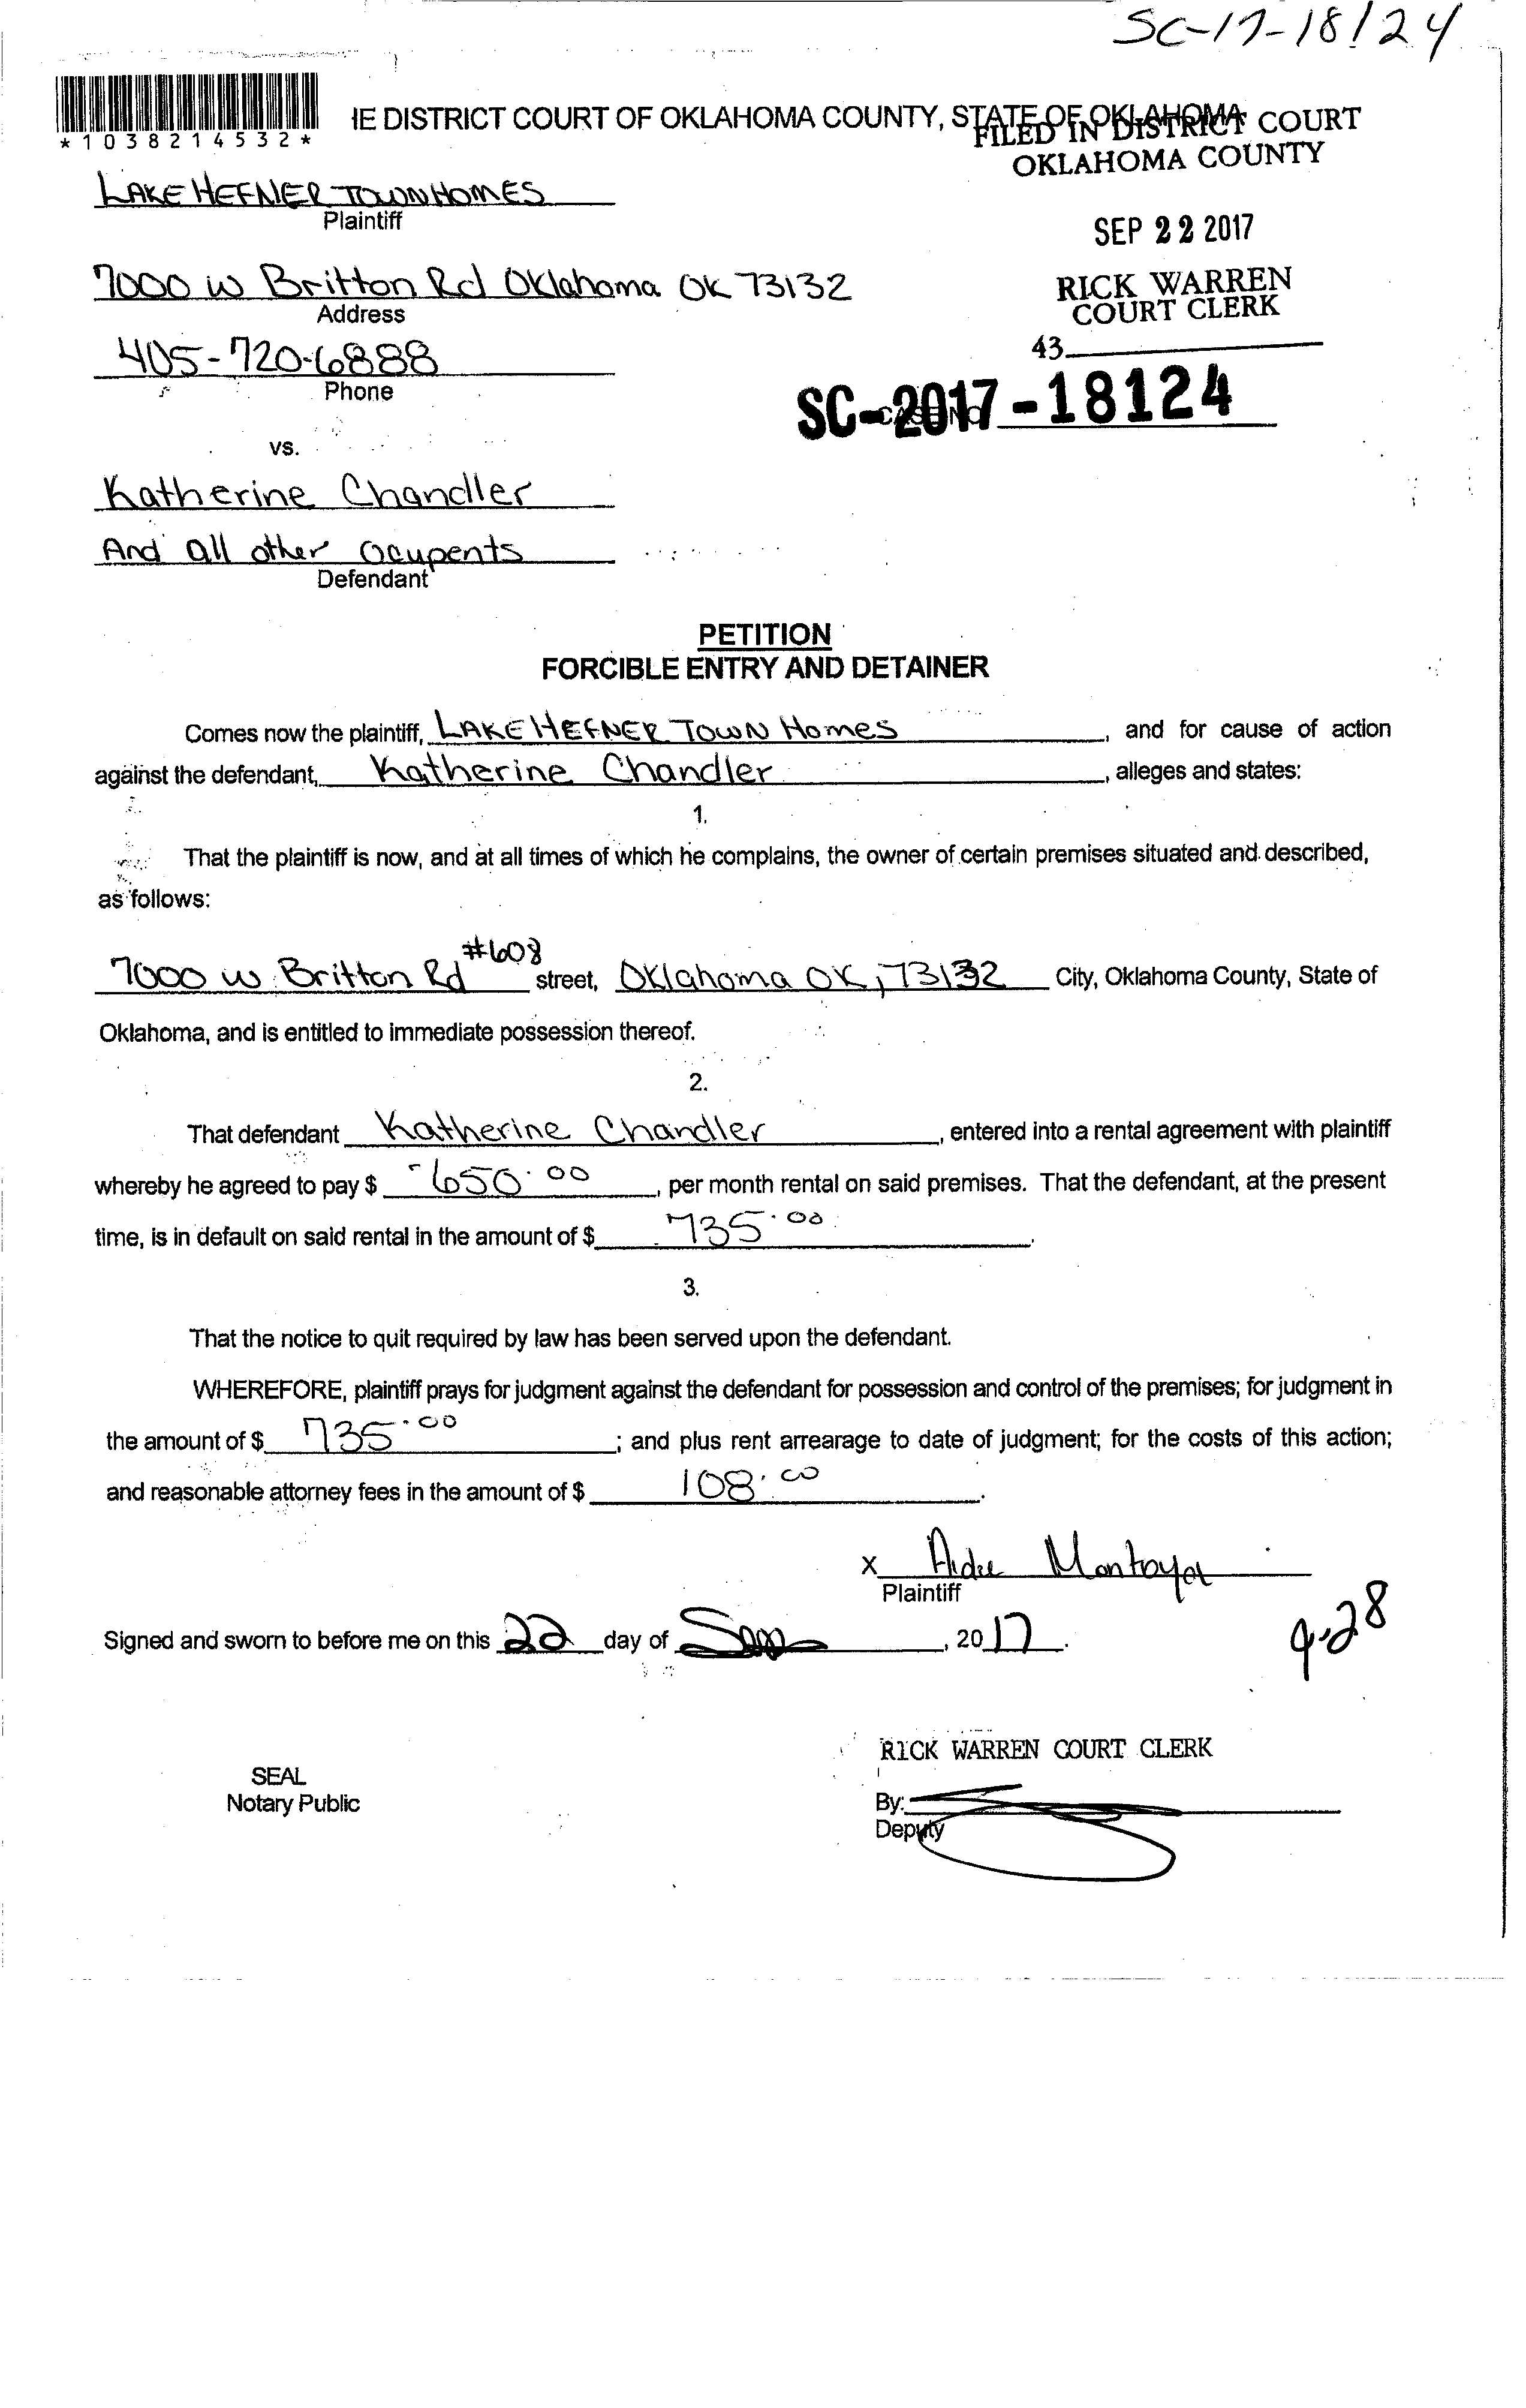 SC-17-18124
*1038214532*
IE DISTRICT COURT OF OKLAHOMA COUNTY, STATE OF OKLAHOMA
FILED IN DISTRICT COURT
OKLAHOMA COUNTY
LAKE HEFNER TOWNHOMES
Plaintiff
SEP 22 2017
7000 W Britton Rd Oklahoma OK 73132
Address
RICK WARREN
COURT CLERK
405-720-6888
Phone
43
SC-2017-18124
CASE NO
vs.
Katherine Chandler
And all other Ocupents
Defendant
PETITION
FORCIBLE ENTRY AND DETAINER
Comes now the plaintiff, LAKE HEFNER TOWN Homes, and for cause of action
against the defendant, Katherine Chandler, alleges and states:
1.
That the plaintiff is now, and at all times of which he complains, the owner of certain premises situated and described,
as follows:
7000 W Britton Rd #608 street, Oklahoma OK, 73132 City, Oklahoma County, State of
Oklahoma, and is entitled to immediate possession thereof.
2.
That defendant Katherine Chandler, entered into a rental agreement with plaintiff
whereby he agreed to pay $ 650.00, per month rental on said premises. That the defendant, at the present
time, is in default on said rental in the amount of $ 735.00.
3.
That the notice to quit required by law has been served upon the defendant.
WHEREFORE, plaintiff prays for judgment against the defendant for possession and control of the premises; for judgment in
the amount of $ 735.00; and plus rent arrearage to date of judgment; for the costs of this action;
and reasonable attorney fees in the amount of $ 108.00.
X Montoya
Plaintiff
9-28
Signed and sworn to before me on this 22 day of, 2017.
RICK WARREN COURT CLERK
SEAL
Notary Public
By:
Deputy